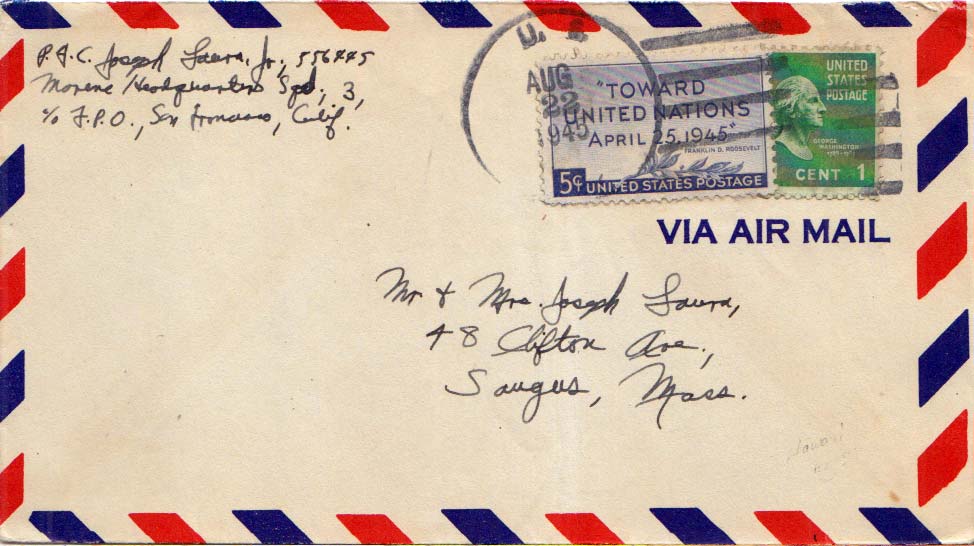 P.F.C. Joseph Laura, Jr., 556445
Marine Headquarters Sqd, 3,
c/o F.P.O., San Francisco, Calif.
U. S.
AUG
22
1945
"TOWARD
UNITED NATIONS
APRIL 25, 1945"
FRANKLIN D. ROOSEVELT
5¢ UNITED STATES POSTAGE
UNITED
STATES
POSTAGE
GEORGE
WASHINGTON
CENT 1
VIA AIR MAIL
Mr & Mrs. Joseph Laura,
48 Clifton Ave.,
Saugus, Mass.
Hawaii